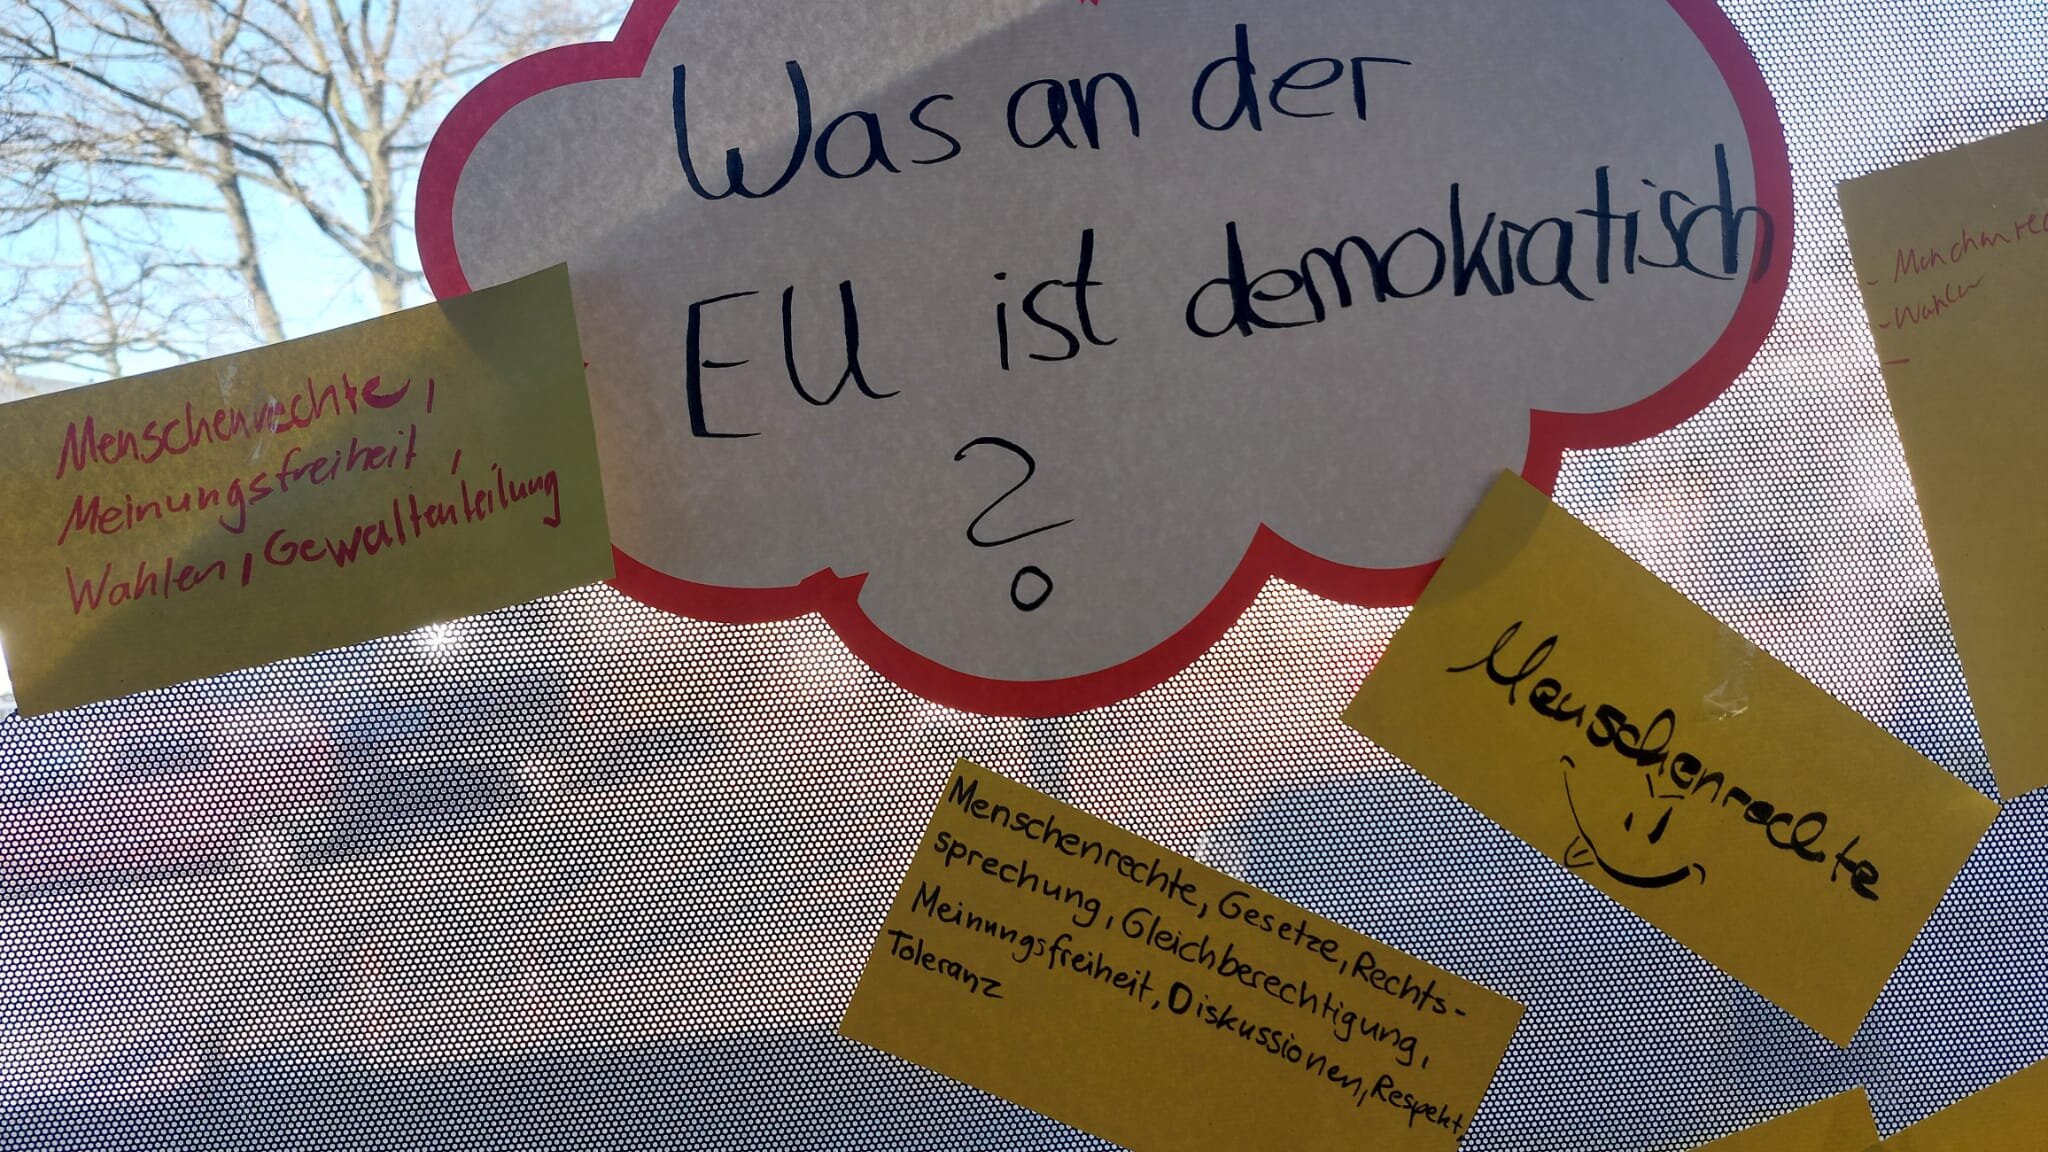 Was an der
EU ist demokratisch
?
Menschenrechte,
Meinungsfreiheit,
Wahlen, Gewaltenteilung
- Wahlen
-
Menschenrechte
Menschenrechte, Gesetze, Rechts-
sprechung, Gleichberechtigung,
Meinungsfreiheit, Diskussionen, Respekt,
Toleranz